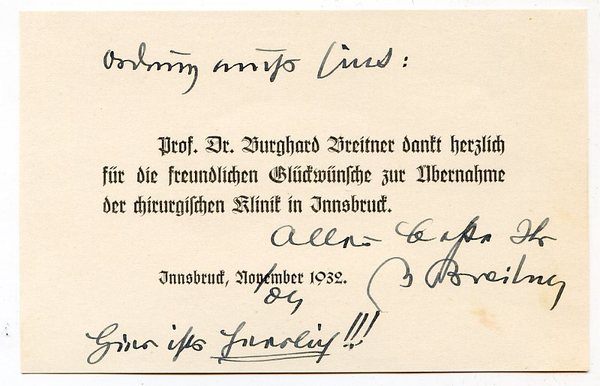 Ordnung muß sein:
Prof. Dr. Burghard Breitner dankt herzlich
für die freundlichen Glückwünsche zur Übernahme
der chirurgischen Klinik in Innsbruck.
Alles beste Ihr
Innsbruck, November 1932.
B Breitner
Hier ists herrlich!!!